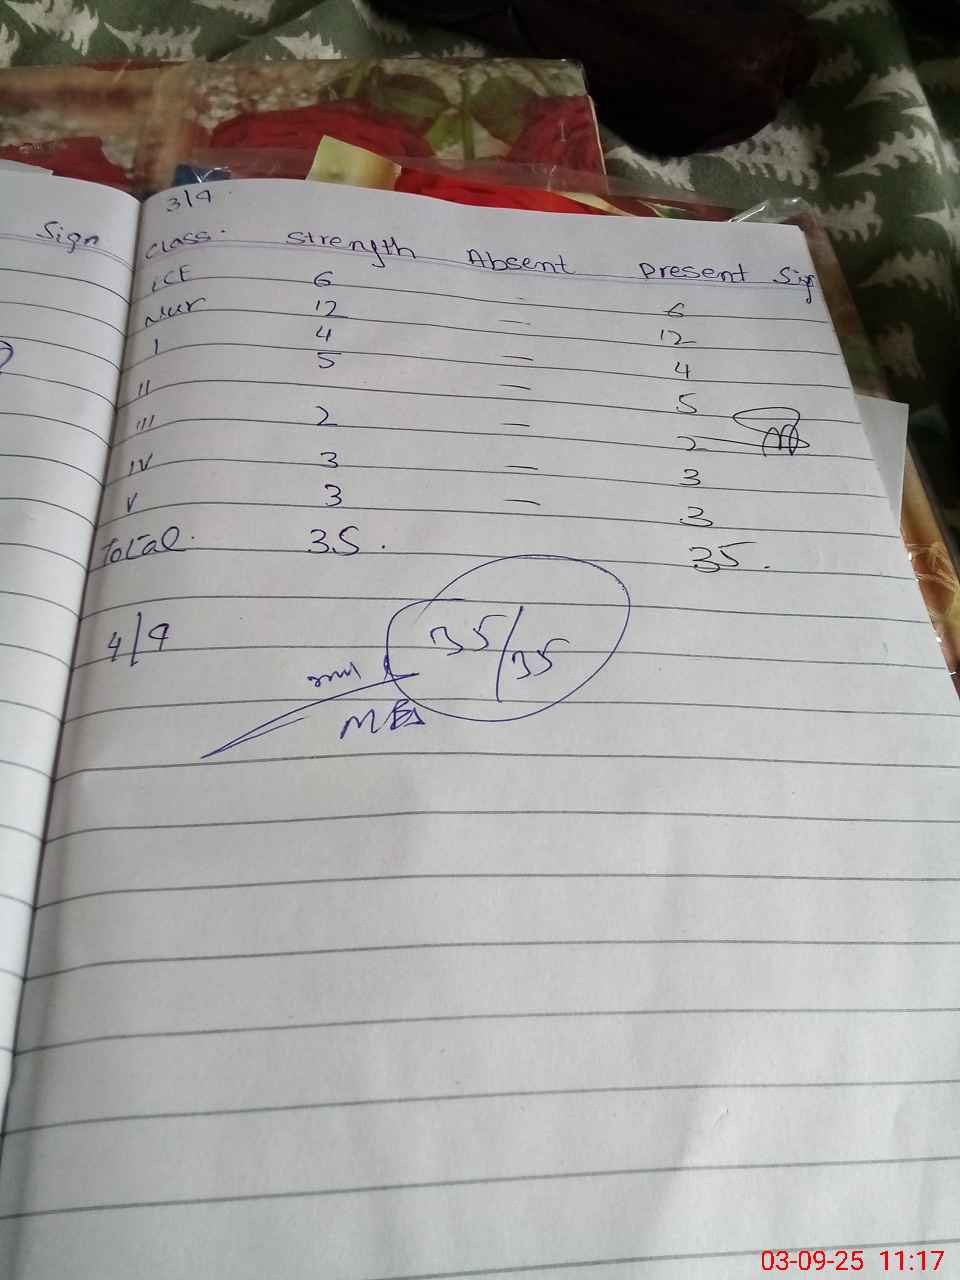 Sign
3/9
Class. Strength Absent Present Sign
LCE 6 - 6
Nur 12 - 12
I 4 - 4
II 5 - 5
III 2 - 2
IV 3 - 3
V 3 - 3
Total. 35. 35.
4/9
35/35
03-09-25 11:17